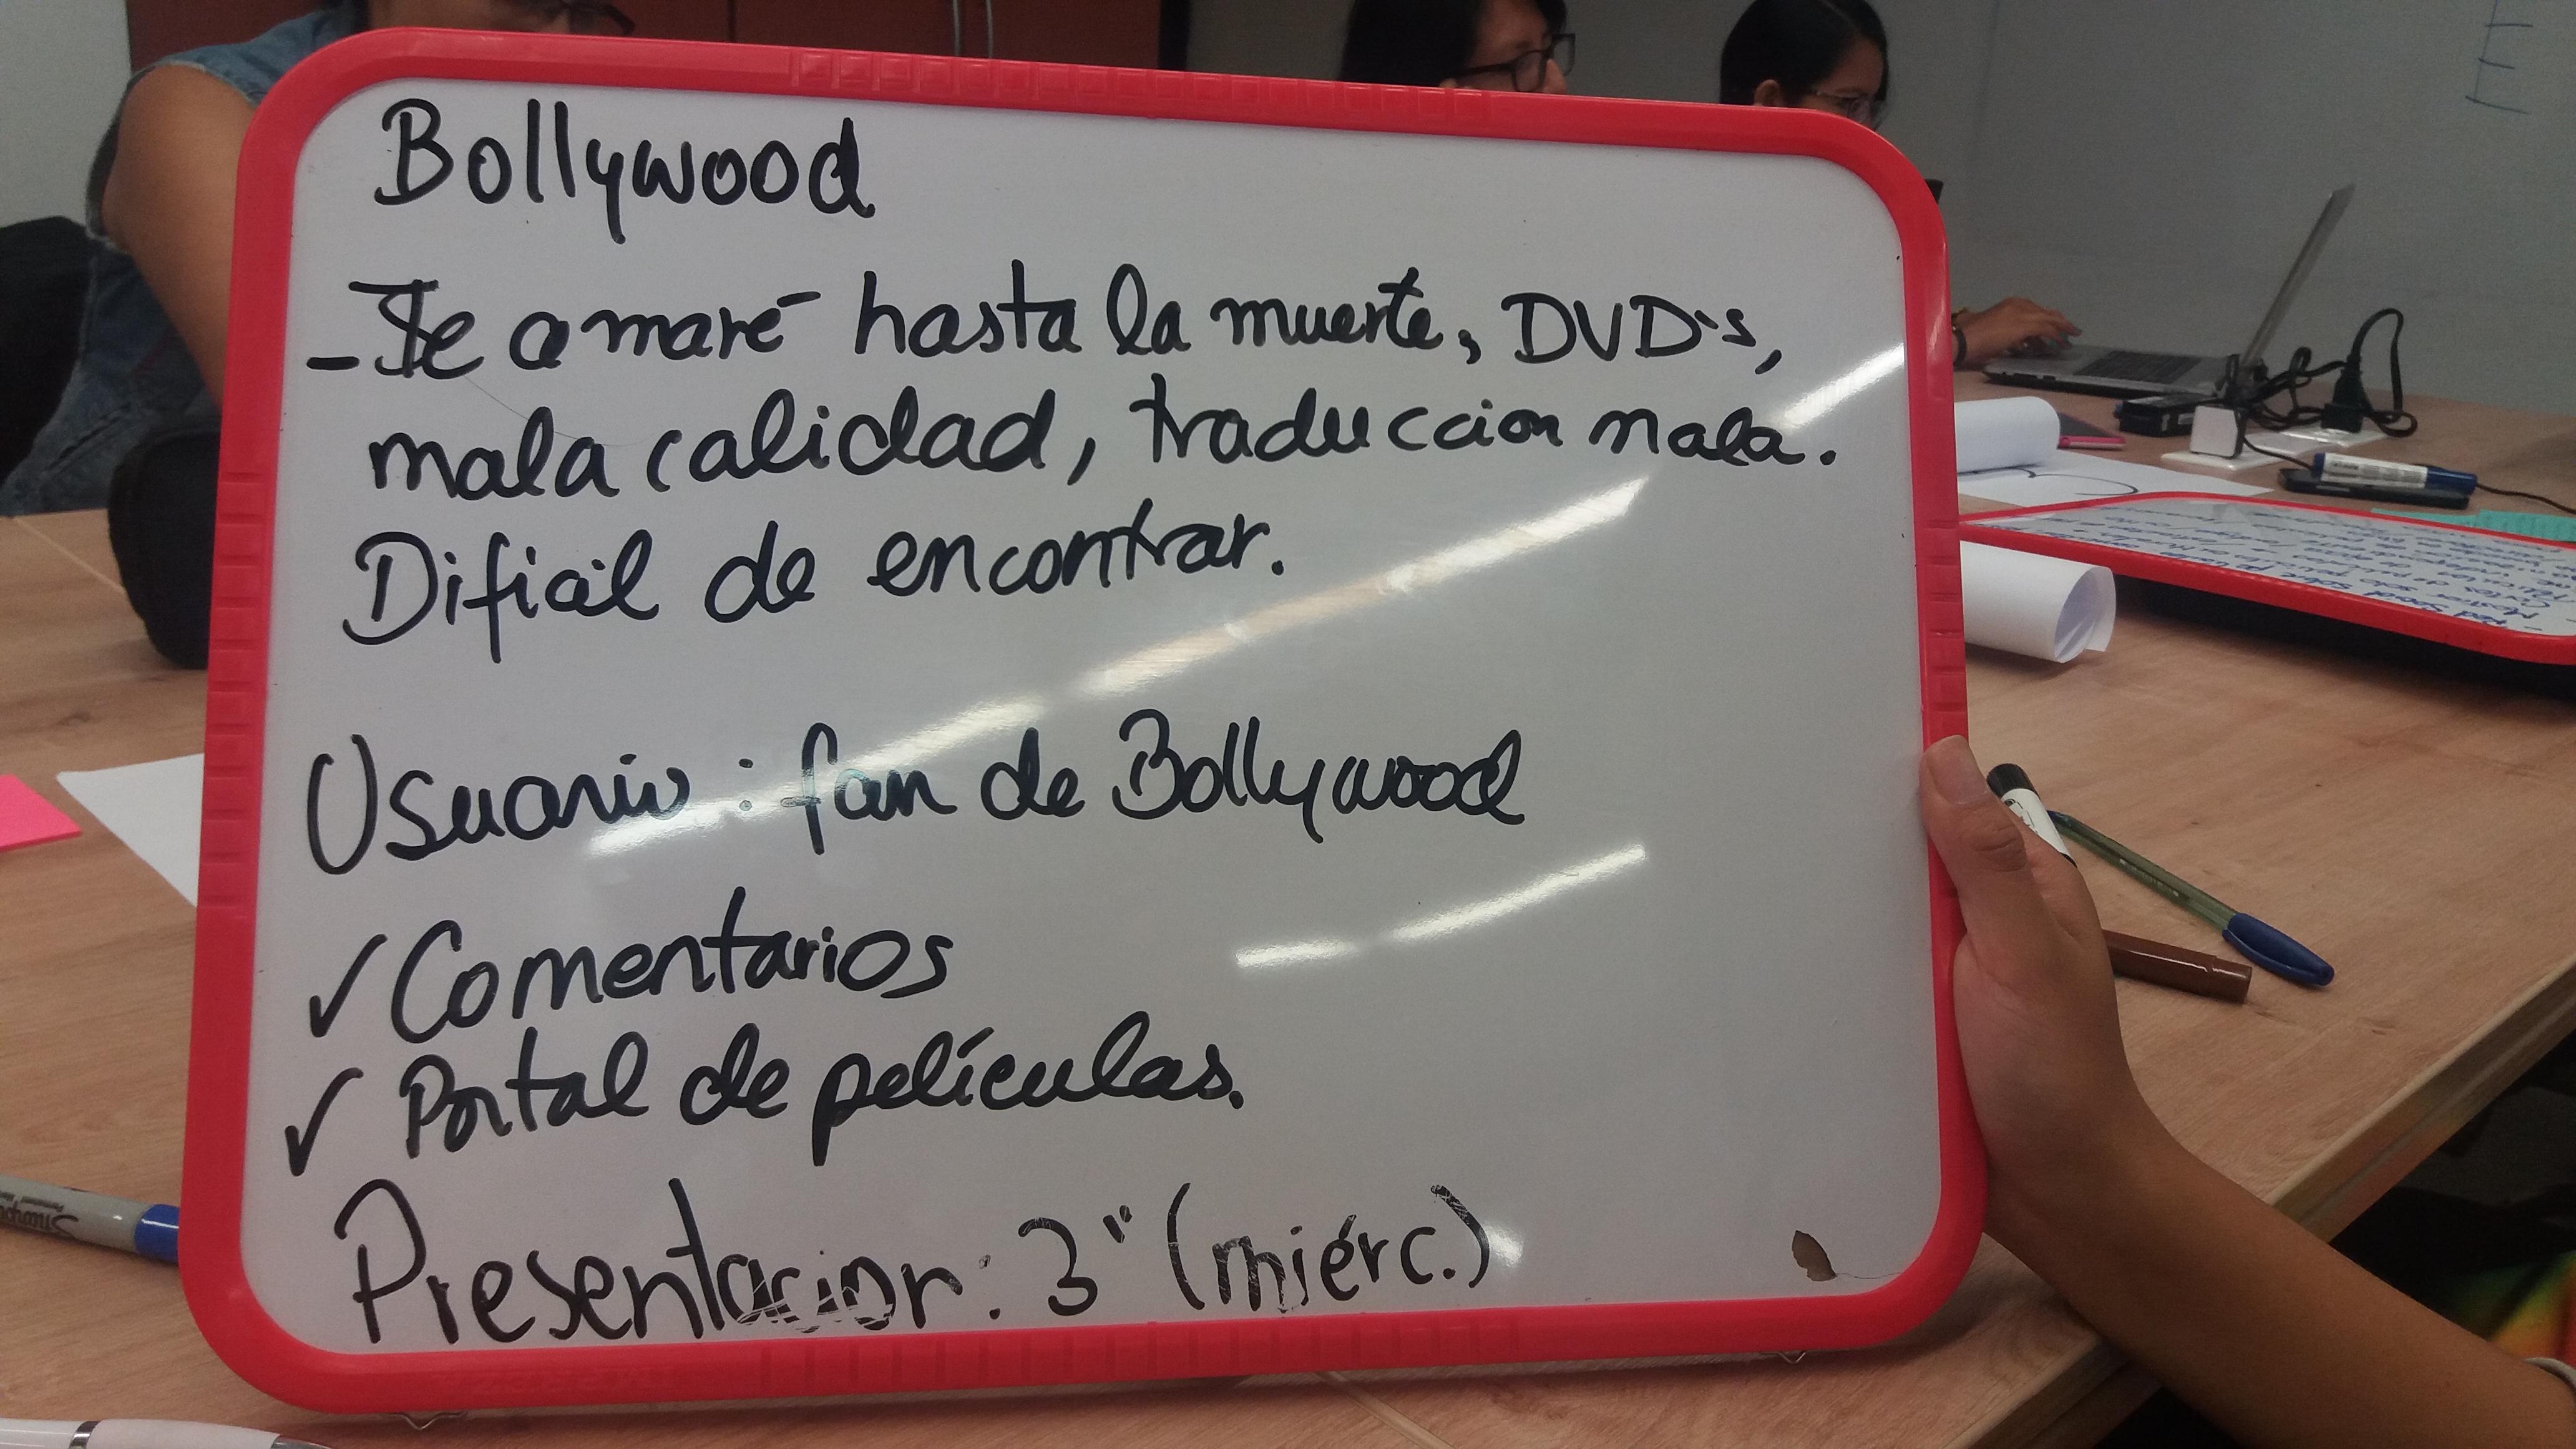 Bollywood
- Te amaré hasta la muerte, DVD's,
mala calidad, traduccion mala.
Dificil de encontrar.
Usuario : fan de Bollywood
✓ Comentarios
✓ Portal de películas.
Presentacion: 3" (miérc.)